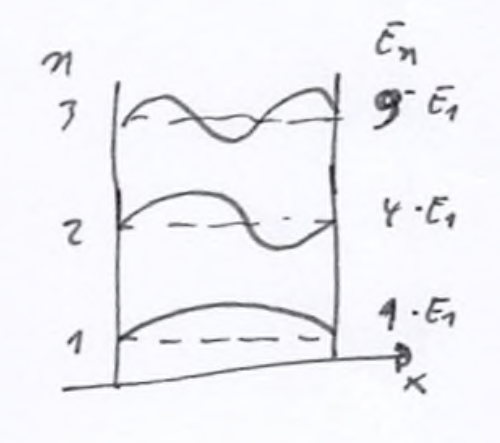 n Eₙ
3 9 · E₁
2 4 · E₁
1 1 · E₁
x